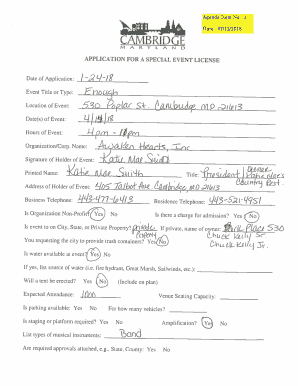 Agenda Item No. 3
Date 02/12/2018
CAMBRIDGE
MARYLAND
APPLICATION FOR A SPECIAL EVENT LICENSE
Date of Application: 1-24-18
Event Title or Type: Enough
Location of Event: 530 Poplar St. Cambridge, MD 21613
Date(s) of Event: 4/14/18
Hours of Event: 4pm - 10pm
Organization/Corp. Name: Awaken Hearts, Inc
Signature of Holder of Event: Katie Mae Smith
Printed Name: Katie Mae Smith Title: President / Owner Katie Mae's Country Best.
Address of Holder of Event: 405 Talbot Ave Cambridge, MD 21613
Business Telephone: 443-477-6413 Residence Telephone: 443-521-4951
Is Organization Non-Profit? Yes No Is there a charge for admission? Yes No
Is event on City, State, or Private Property? private property If private, name of owner: Place 530
Chuck Kelly Sr
You requesting the city to provide trash containers? Yes No Chuck Kelly Jr.
Is water available at event? Yes No
If yes, list source of water (i.e. fire hydrant, Great Marsh, Sailwinds, etc.):
Will a tent be erected? Yes No (Include on plan)
Expected Attendance: 100 Venue Seating Capacity:
Is parking available: Yes No For how many vehicles?
Is staging or platform required? Yes No Amplification? Yes No
List types of musical instruments: Band
Are required approvals attached, e.g., State, County: Yes No